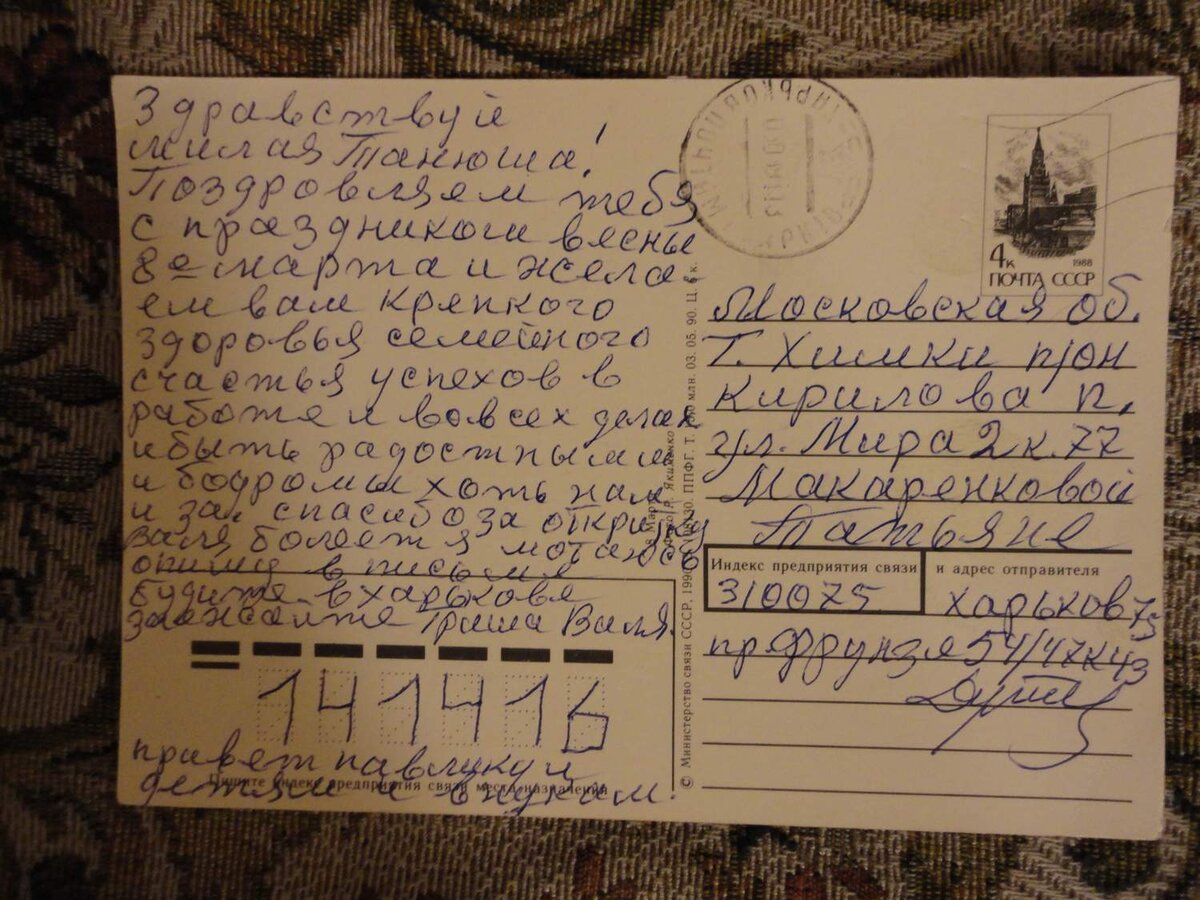 Здравствуй
милая Танюша!
Поздровляем тебя
с праздником вясны
8е марта и жела-
ем вам кряпкого
здоровья семейного
счастья успехов в
работе и во всех делах
и быть радостными
и бодрыми хоть нам
и за спасибо за открытку
Валя болеет я мотаюсь
опишу в письмя
будите в харькове
заежайте Гриша Валя.
141416
привет павлику и
детям и внукам.
Пишите индекс предприятия связи места назначения
8 Марта
Фото Р. Якименко
© Министерство связи СССР, 1990. ППФГ. Т. млн. 03. 05. 90. Ц. 6 к.
4к
1988
ПОЧТА СССР
Московская об.
Г. Химки п/он
кирилова п.
ул. Мира 2 к. 77
Макаренковой
Татьяне
Индекс предприятия связи и адрес отправителя
310075 харьков 75
пр Фрунзя 54/47 к 43